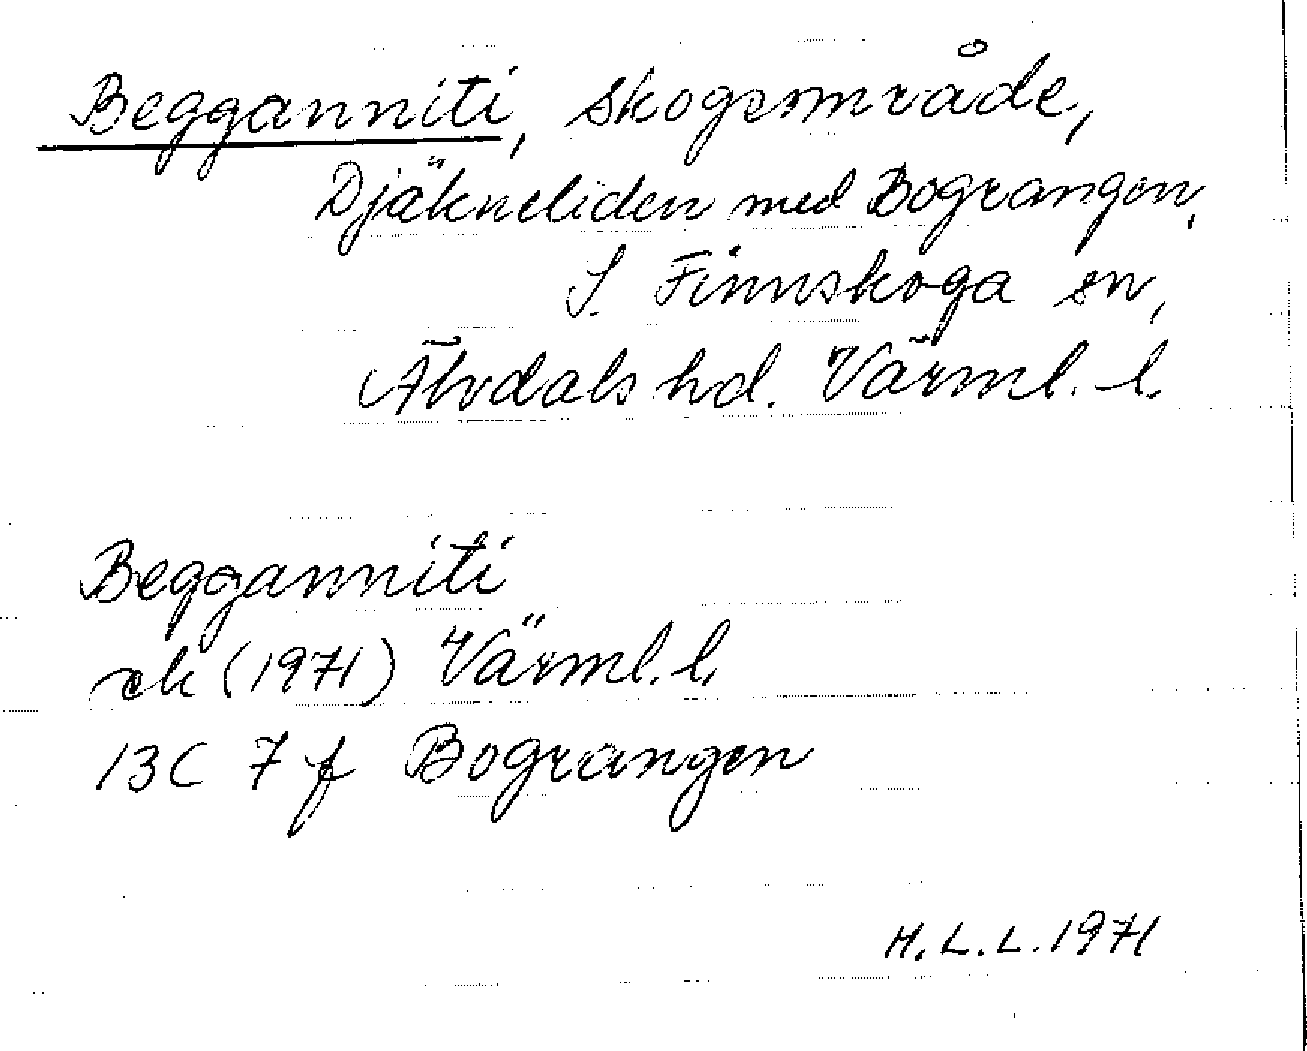 Begganniti, skogsområde,
Djäkneliden med Bograngen,
S. Finnskoga sn,
Älvdals hd. Värml. l.
Begganniti
rek (1971) Värml. l.
13C 7f Bograngen
H.L.L. 1971